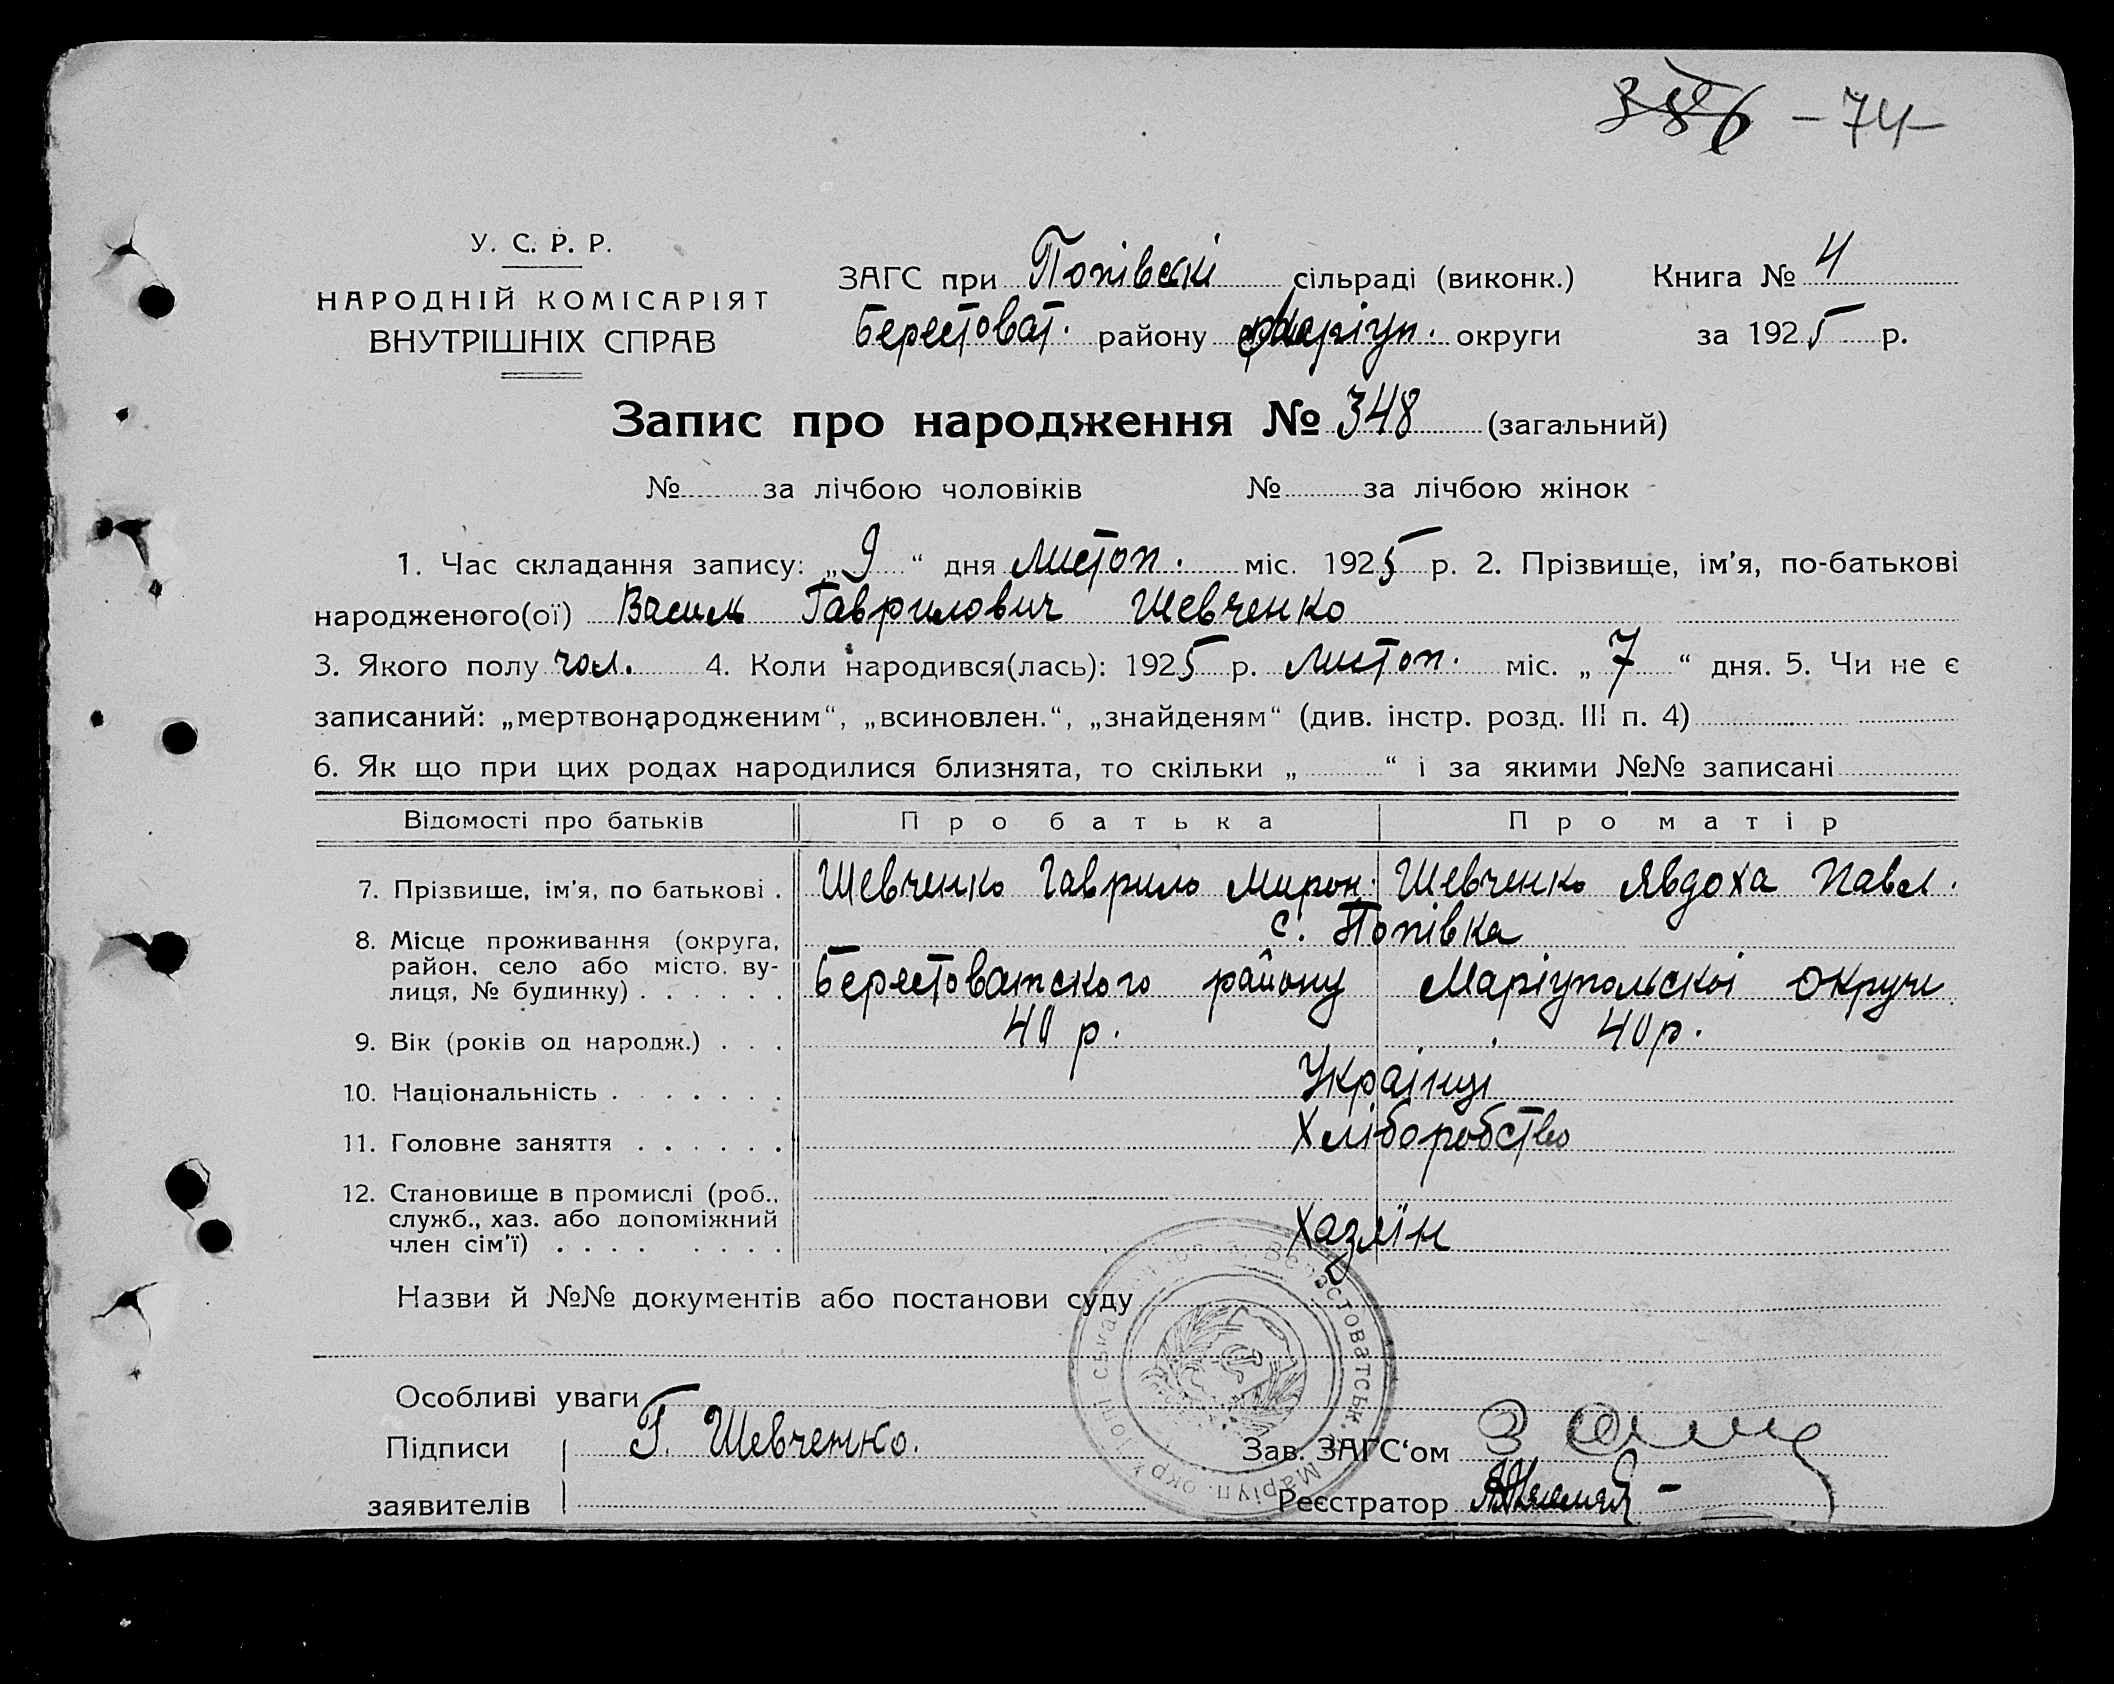 386 – 74 –
У. С. Р. Р.
НАРОДНІЙ КОМІСАРІЯТ
ВНУТРІШНІХ СПРАВ
ЗАГС при Попівскі сільраді (виконк.) Книга № 4
Берестоват. району Маріуп. округи за 1925 р.
Запис про народження № 348 (загальний)
№ за лічбою чоловіків № за лічбою жінок
1. Час складання запису: „9“ дня листоп. міс. 1925 р. 2. Прізвище, ім'я, по-батькові
народженого(ої) Василь Гаврилович Шевченко
3. Якого полу чол. 4. Коли народився(лась): 1925 р. листоп. міс. „7“ дня. 5. Чи не є
записаний: „мертвонародженим“, „всиновлен.“, „знайденям“ (див. інстр. розд. III п. 4)
6. Як що при цих родах народилися близнята, то скільки „ “ і за якими №№ записані
Відомості про батьків Про батька Про матір
7. Прізвище, ім'я, по батькові . Шевченко Гаврило Мирон. Шевченко Явдоха Павл.
8. Місце проживання (округа, с. Попівка
район, село або місто, ву-
лиця, № будинку) . . . . . . Берестоватского району Маріупольскої округи
9. Вік (років од народж.) . . . 40 р. 40 р.
10. Національність . . . . . . . Українці
11. Головне заняття . . . . . . Хліборобство
12. Становище в промислі (роб.,
служб., хаз. або допоміжний
член сім'ї) . . . . . . . . Хазяїн
Назви й №№ документів або постанови суду
Берестоватськ. Маріуп. окр.
Особливі уваги
Підписи Г. Шевченко. Зав. ЗАГС‘ом
заявителів Реєстратор